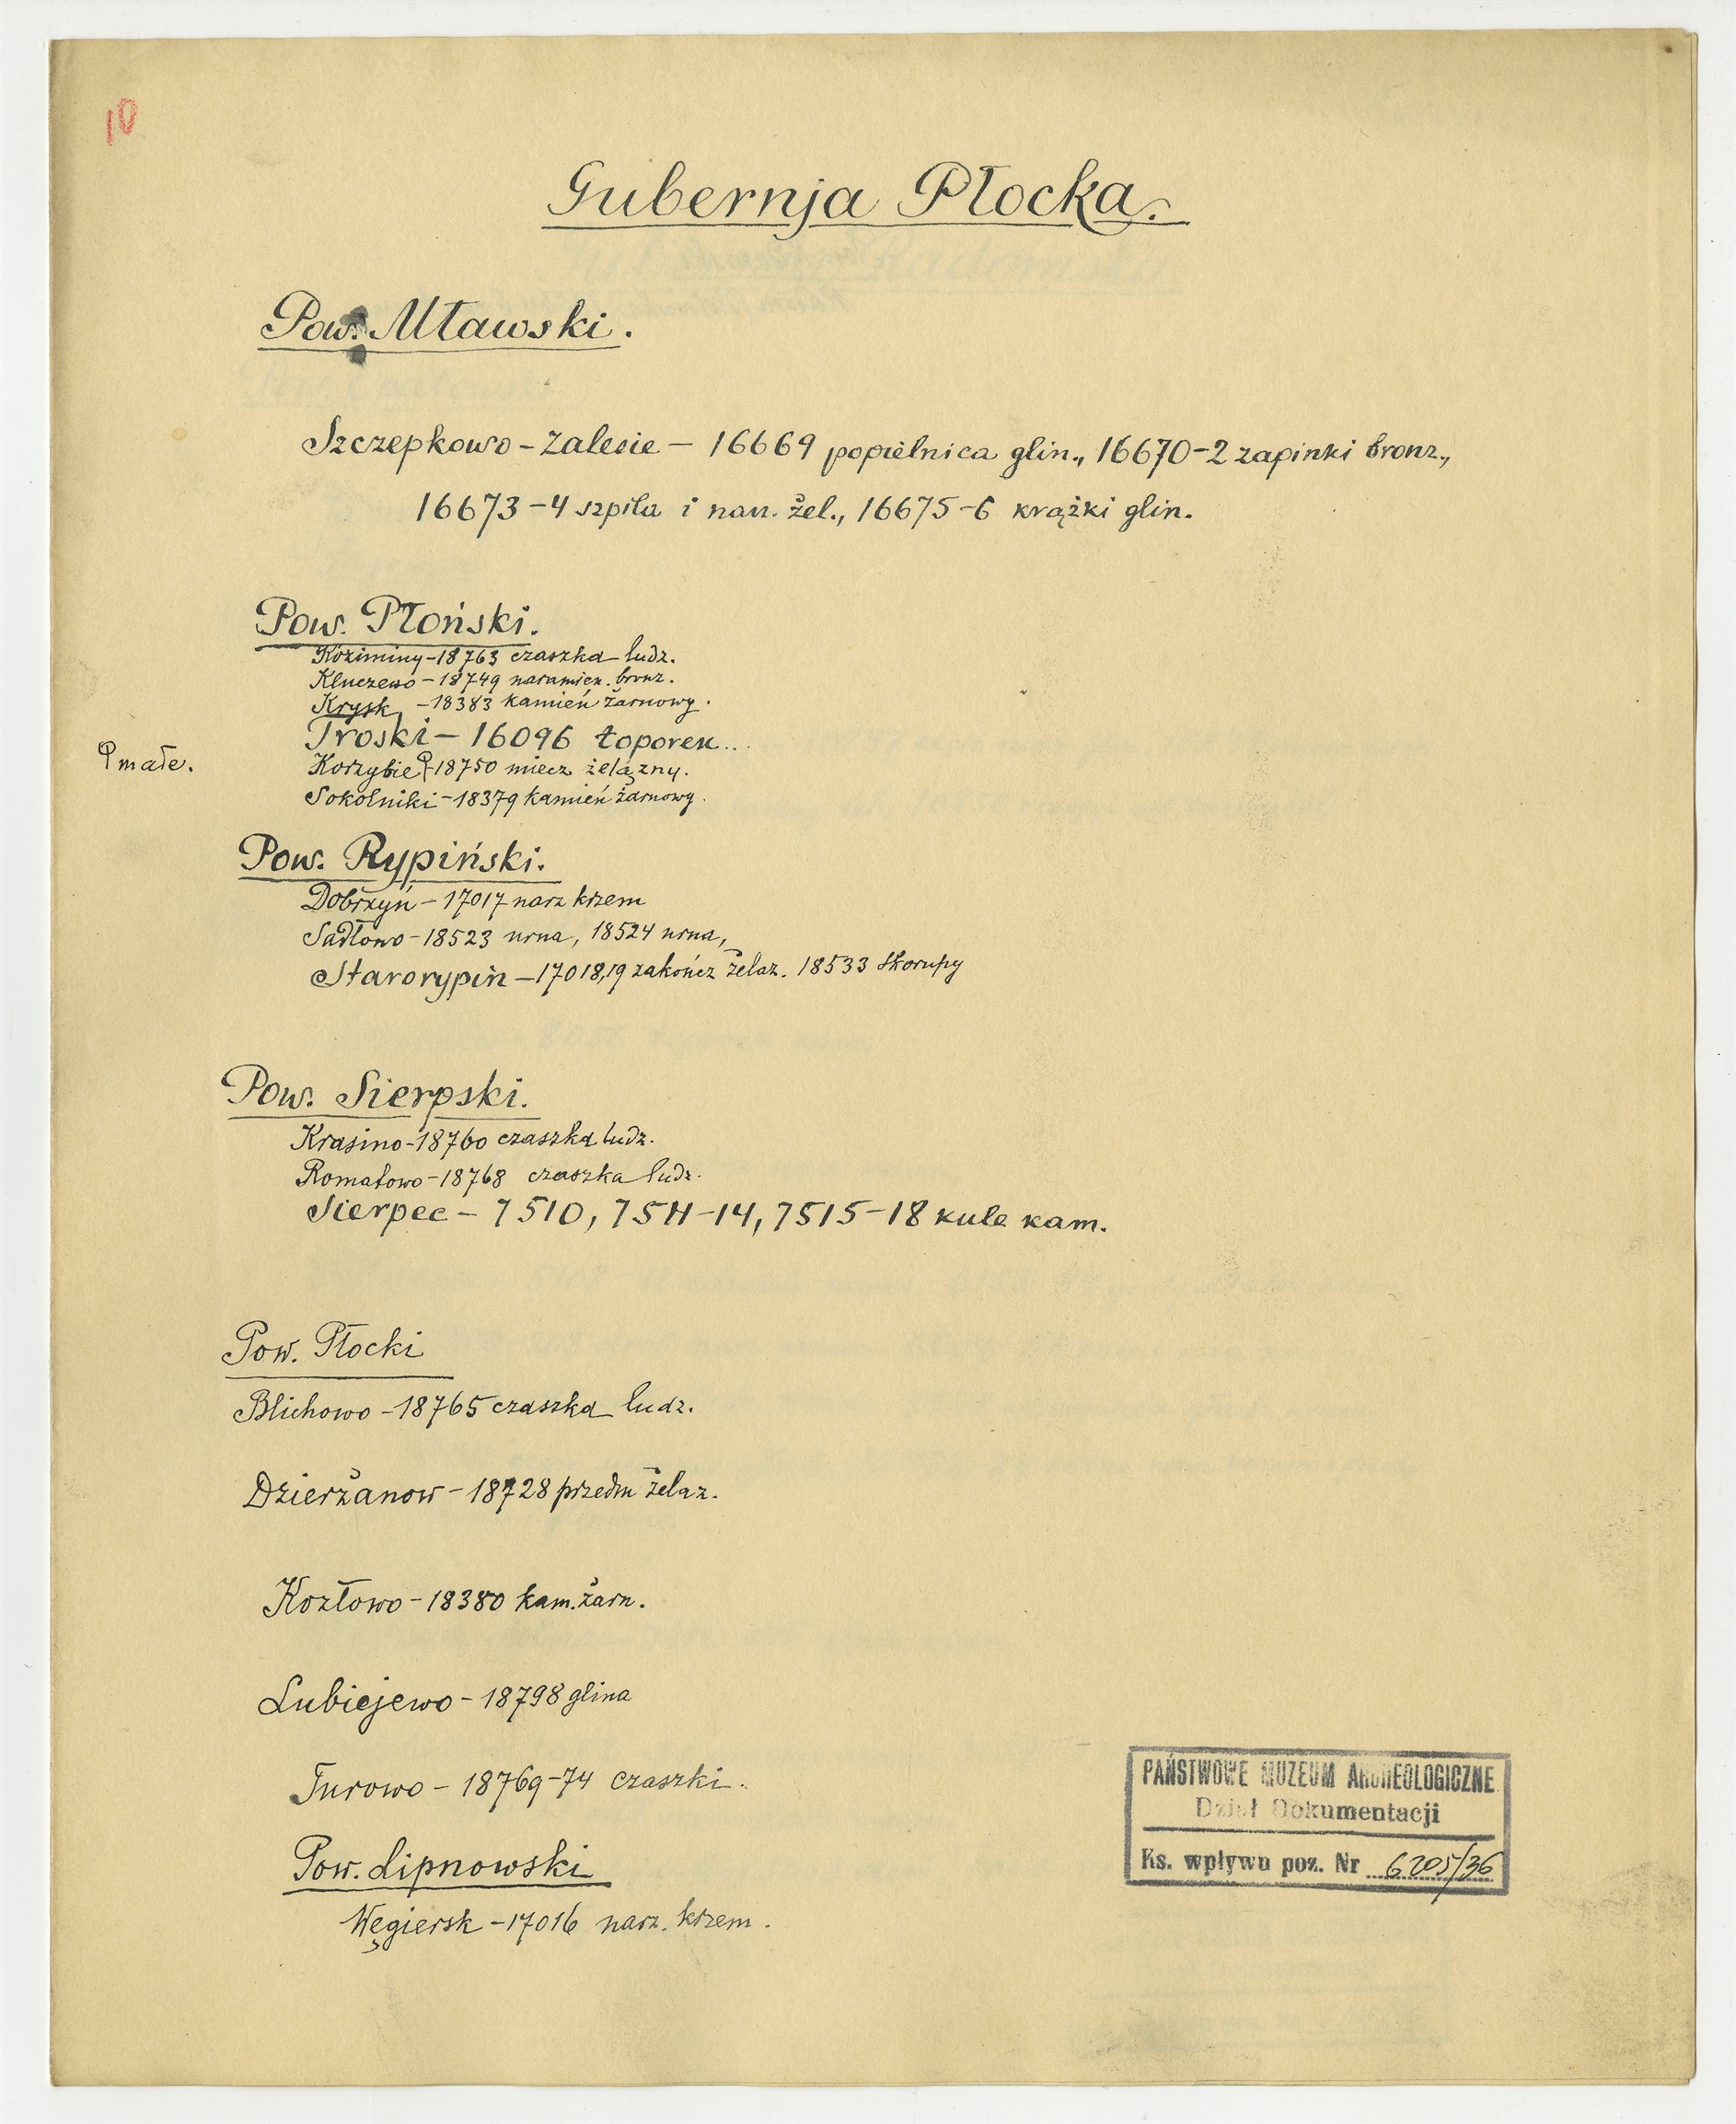 10
Gubernja Płocka.
Pow. Mławski.
Szczepkowo-Zalesie – 16669 popielnica glin., 16670-2 zapinki bronz.,
16673-4 szpila i nau. żel., 16675-6 krążki glin.
Pow. Płoński.
Koziminy-18763 czaszka ludz.
Kluczewo-18749 naramien. bronz.
Krysk -18383 kamień żarnowy.
Troski – 16096 toporek..
małe.
Korzybie-18750 miecz żelazny.
Sokolniki-18379 kamień żarnowy.
Pow. Rypiński.
Dobrzyń – 17017 narz krzem
Sadłowo-18523 urna, 18524 urna,
Starorypin – 17018,19 zakończ żelaz. 18533 skorupy
Pow. Sierpski.
Krasino-18760 czaszka ludz.
Romatowo-18768 czaszka ludz.
Sierpec – 7510, 7511-14, 7515-18 kule kam.
Pow. Płocki
Blichowo-18765 czaszka ludz.
Dzierżanow-18728 przedm żelaz.
Kozłowo-18380 kam. żarn.
Lubiejewo-18798 glina
Turowo – 18769-74 czaszki.
PAŃSTWOWE MUZEUM ARCHEOLOGICZNE
Dział Dokumentacji
Ks. wpływu poz. Nr 6205/36
Pow. Lipnowski
Węgiersk-17016 narz. krzem.